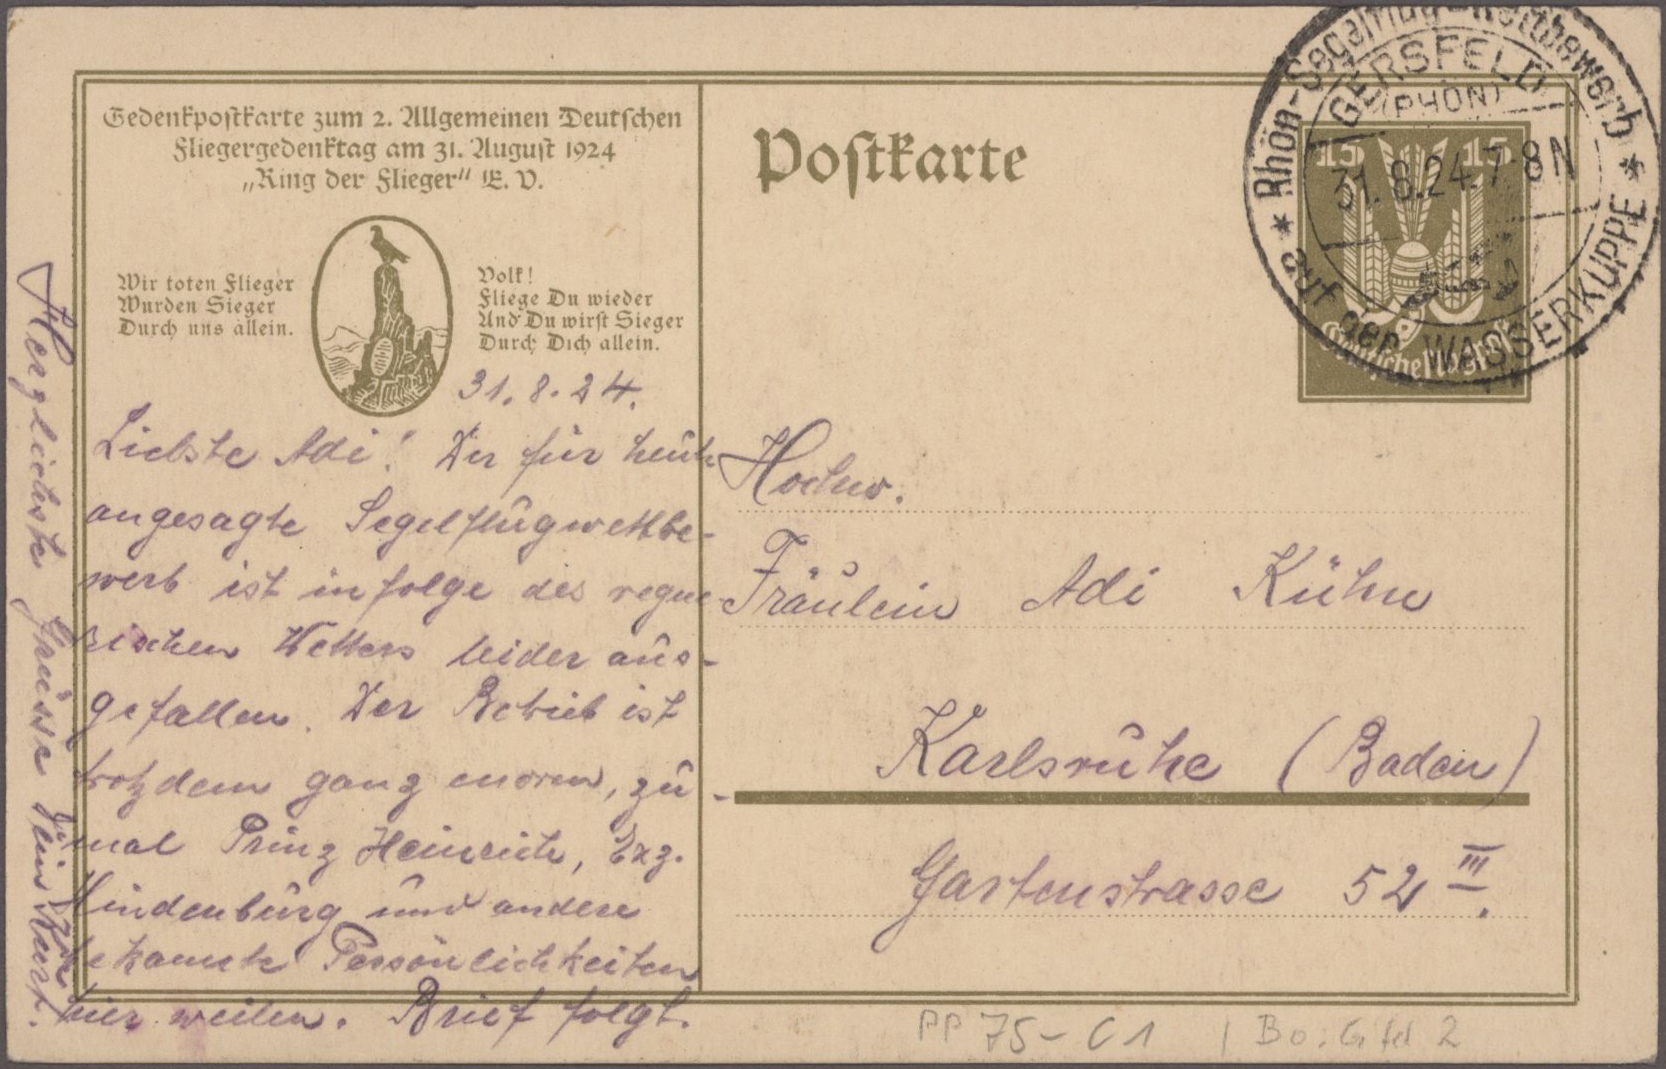 Gedenkpostkarte zum 2. Allgemeinen Deutschen
Fliegergedenktag am 31. August 1924
„Ring der Flieger" E. V.
Wir toten Flieger
Wurden Sieger
Durch uns allein.
Volk!
Fliege Du wieder
Und Du wirst Sieger
Durch Dich allein.
31. 8. 24.
Liebste Adi! Der für heute
angesagte Segelflugwettbe-
werb ist infolge des regne-
rischen Wetters leider aus-
gefallen. Der Betrieb ist
trotzdem ganz enorm, zu-
mal Prinz Heinrich, Exz.
Hindenburg und andere
bekannte Persönlichkeiten
hier weilen. Brief folgt.
Herzlichste Grüsse Dein Kurt.
Postkarte
Rhön-Segelflug-Wettbewerb
* auf der WASSERKUPPE *
GERSFELD
(RHÖN)
31.8.24.7-8N
15 15
Deutsches Reich
Hochw.
Fräulein Adi Kühn
Karlsruhe (Baden)
Gartenstrasse 52 III.
PP 75-C1 / Bo: Gfd 2